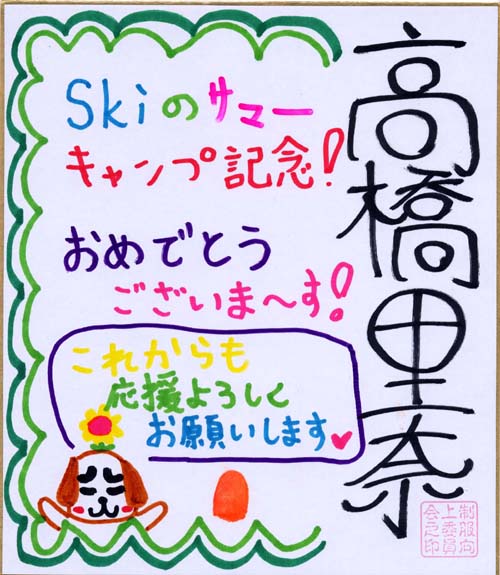 高橋里奈
Skiのサマー
キャンプ記念!
おめでとう
ございま〜す!
これからも
応援よろしく
お願いします♥
制服向
上委員
会之印